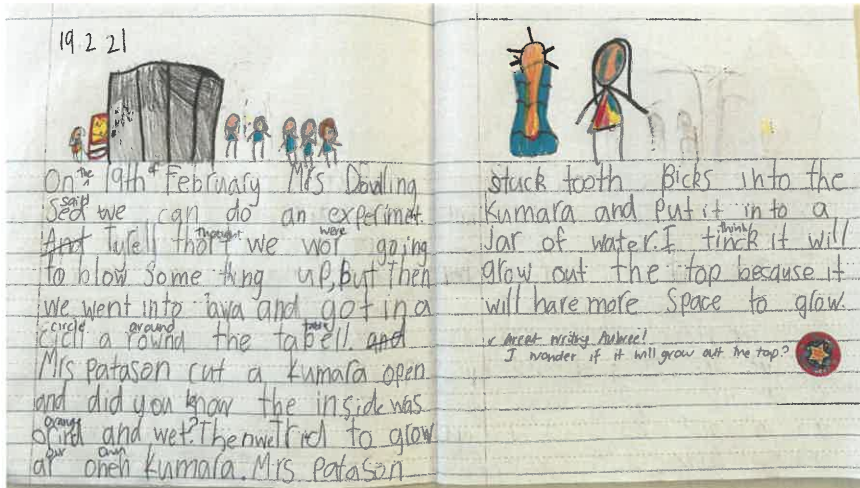 19.2.21
On the 19th of February Mrs Dowling
sed said we can do an experimet.
And Tyrell thort thought we wor were going
to blow some thing up, but then
we went into tawa and got in a
cicll circle a rownd around the tabell table. and
Mrs patason cut a kumara open
and did you know the inside was
orind orange and wet? Then we trid to grow
ar our oneh own kumara. Mrs patason
stuck tooth Bicks into the
kumara and put it in to a
jar of water. I tinck think it will
grow out the top because it
will have more space to grow.
Great writing Aubree!
I wonder if it will grow out the top?